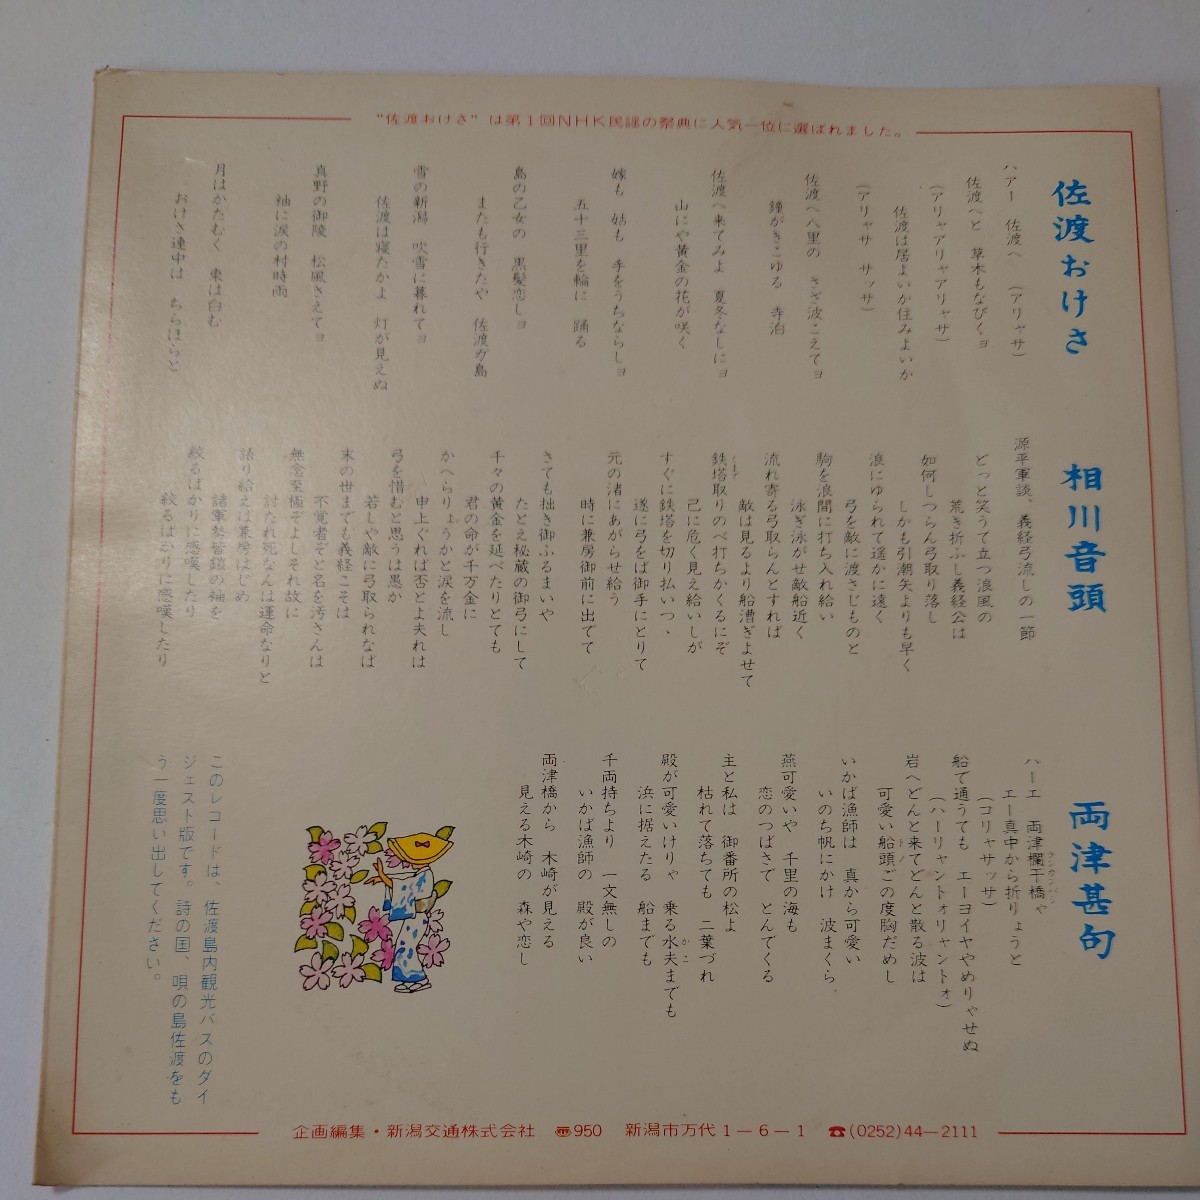 "佐渡おけさ"は第1回NHK民謡の祭典に人気一位に選ばれました。
佐渡おけさ
ハアー 佐渡へ (アリャサ)
佐渡へと 草木もなびくヨ
(アリャアリャアリャサ)
佐渡は居よいか住みよいか
(アリャサ サッサ)
佐渡へへ里の さざ波こえてヨ
鐘がきこゆる 寺泊
佐渡へ来てみよ 夏冬なしにヨ
山にゃ黄金の花が咲く
嫁も 姑も 手をうちならしヨ
五十三里を輪に 踊る
島の乙女の 黒髪恋しヨ
またも行きたや 佐渡が島
雪の新潟 吹雪に暮れてヨ
佐渡は寝たかよ 灯が見えぬ
真野の御陵 松風さえてヨ
袖に涙の村時雨
月はかたむく 東は白む
おけさ連中は ちらほらと
相川音頭
源平軍談、義経弓流しの一節
どっと笑うて立つ浪風の
荒き折ふし義経公は
如何しつらん弓取り落し
しかも引潮矢よりも早く
浪にゆられて遥かに遠く
弓を敵に渡さじものと
駒を浪間に打ち入れ給い
泳ぎ泳がせ敵船近く
流れ寄る弓取らんとすれば
敵は見るより船漕ぎよせて
鉄塔取りのべ打ちかくるにぞ
くまで
己に危く見え給いしが
すぐに鉄塔を切り払いつつ、
遂に弓をば御手にとりて
元の渚にあがらせ給う
時に兼房御前に出でて
さても拙き御ふるまいや
たとえ秘蔵の御弓にして
千々の黄金を延べたりとても
君の命が千万金に
かへらりょうかと涙を流し
申上ぐれば否とよ夫れは
弓を惜むと思うは愚か
若しや敵に弓取られなば
末の世までも義経こそは
不覚者ぞと名を汚さんは
無念至極ぞよしそれ故に
討たれ死なんは運命なりと
語り給えは兼房はじめ
諸軍勢皆鎧の袖を
絞るばかりに感嘆したり
絞るばかりに感嘆したり
両津甚句
ハーエ 両津欄干橋ゃ
ランカンバシ
エー真中から折りょうと
(コリャサッサ)
船で通うても エーヨイヤやめりゃせぬ
(ハーリャントォリャントォ)
岩へどんと来てどんと散る波は
可愛い船頭ごの度胸だめし
トノ
いかば漁師は 真から可愛い
いのち帆にかけ 波まくら
燕可愛いや 千里の海も
恋のつばさで とんでくる
主と私は 御番所の松よ
枯れて落ちても 二葉づれ
殿が可愛いけりゃ 乗る水夫までも
かこ
浜に据えたる 船までも
千両持ちより 一文無しの
いかば漁師の 殿が良い
両津橋から 木崎が見える
見える木崎の 森や恋し
このレコードは、佐渡島内観光バスのダイ
ジェスト版です。詩の国、唄の島佐渡をも
う一度思い出してください。
企画編集・新潟交通株式会社 〠950 新潟市万代1-6-1 ☎(0252)44-2111